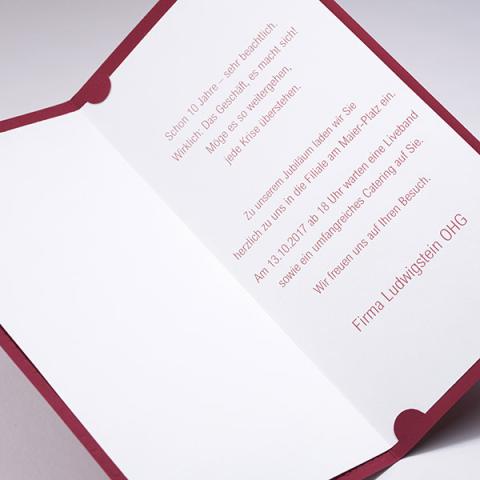 Schon 10 Jahre – sehr beachtlich.
Wirklich: Das Geschäft, es macht sich!
Möge es so weitergehen,
jede Krise überstehen.
Zu unserem Jubiläum laden wir Sie
herzlich zu uns in die Filiale am Maier-Platz ein.
Am 13.10.2017 ab 18 Uhr warten eine Liveband
sowie ein umfangreiches Catering auf Sie.
Wir freuen uns auf Ihren Besuch.
Firma Ludwigstein OHG